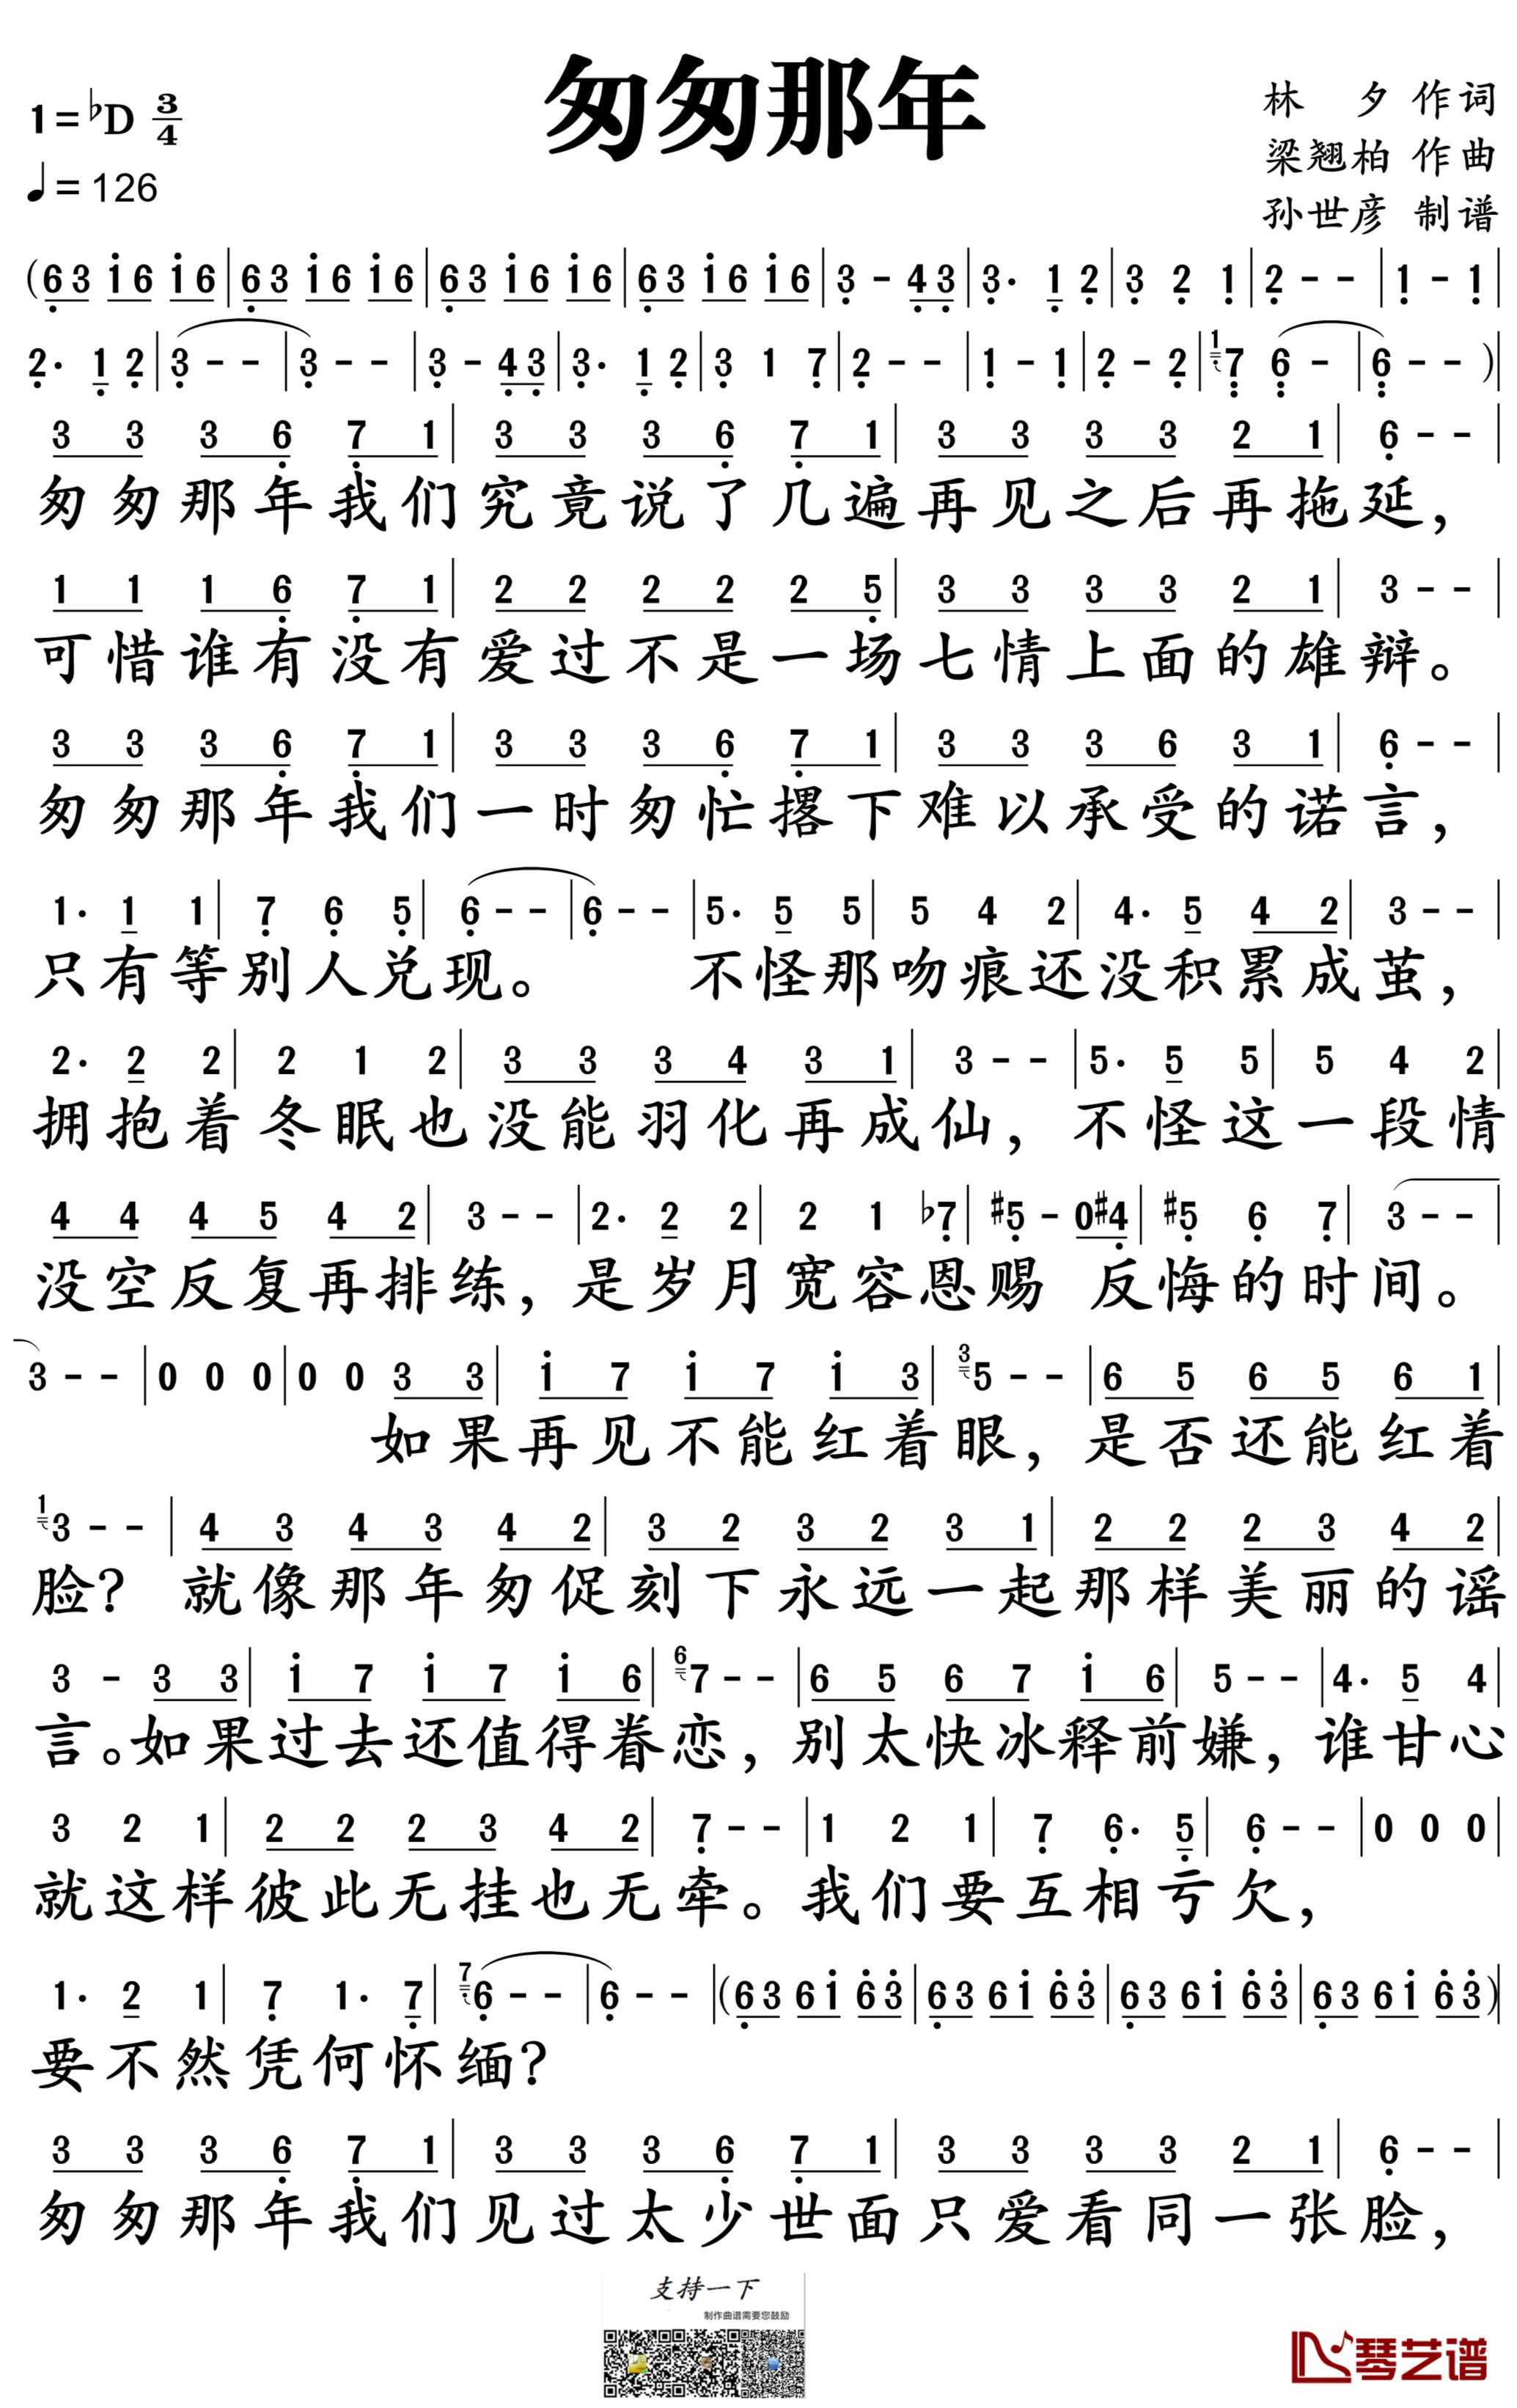 匆匆那年
1=♭D 3/4
♩=126
林 夕 作词
梁翘柏 作曲
孙世彦 制谱
(63 i6 i6|63 i6 i6|63 i6 i6|63 i6 i6|3 - 43|3· 1 2|3 2 1|2 - -|1 - 1|
2· 1 2|3 - -|3 - -|3 - 43|3· 1 2|3 1 7|2 - -|1 - 1|2 - 2|1 7 6 -|6 - -)|
3 3 3 6 7 1|3 3 3 6 7 1|3 3 3 3 2 1|6 - -|
匆匆那年我们究竟说了几遍再见之后再拖延,
1 1 1 6 7 1|2 2 2 2 2 5|3 3 3 3 2 1|3 - -|
可惜谁有没有爱过不是一场七情上面的雄辩。
3 3 3 6 7 1|3 3 3 6 7 1|3 3 3 6 3 1|6 - -|
匆匆那年我们一时匆忙撂下难以承受的诺言,
1· 1 1|7 6 5|6 - -|6 - -|5· 5 5|5 4 2|4· 5 4 2|3 - -|
只有等别人兑现。 不怪那吻痕还没积累成茧,
2· 2 2|2 1 2|3 3 3 4 3 1|3 - -|5· 5 5|5 4 2|
拥抱着冬眠也没能羽化再成仙, 不怪这一段情
4 4 4 5 4 2|3 - -|2· 2 2|2 1 ♭7|#5 - 0#4|#5 6 7|3 - -|
没空反复再排练, 是岁月宽容恩赐 反悔的时间。
3 - -|0 0 0|0 0 3 3|i 7 i 7 i 3|3 5 - -|6 5 6 5 6 1|
如果再见不能红着眼, 是否还能红着
1 3 - -|4 3 4 3 4 2|3 2 3 2 3 1|2 2 2 3 4 2|
脸? 就像那年匆促刻下永远一起那样美丽的谣
3 - 3 3|i 7 i 7 i 6|6 7 - -|6 5 6 7 i 6|5 - -|4· 5 4|
言。如果过去还值得眷恋, 别太快冰释前嫌, 谁甘心
3 2 1|2 2 2 3 4 2|7 - -|1 2 1|7 6· 5|6 - -|0 0 0|
就这样彼此无挂也无牵。我们要互相亏欠,
1· 2 1|7 1· 7|7 6 - -|6 - -|(63 6i 63|63 6i 63|63 6i 63|63 6i 63)|
要不然凭何怀缅?
3 3 3 6 7 1|3 3 3 6 7 1|3 3 3 3 2 1|6 - -|
匆匆那年我们见过太少世面只爱看同一张脸,
支持一下
制作曲谱需要您鼓励
琴艺谱